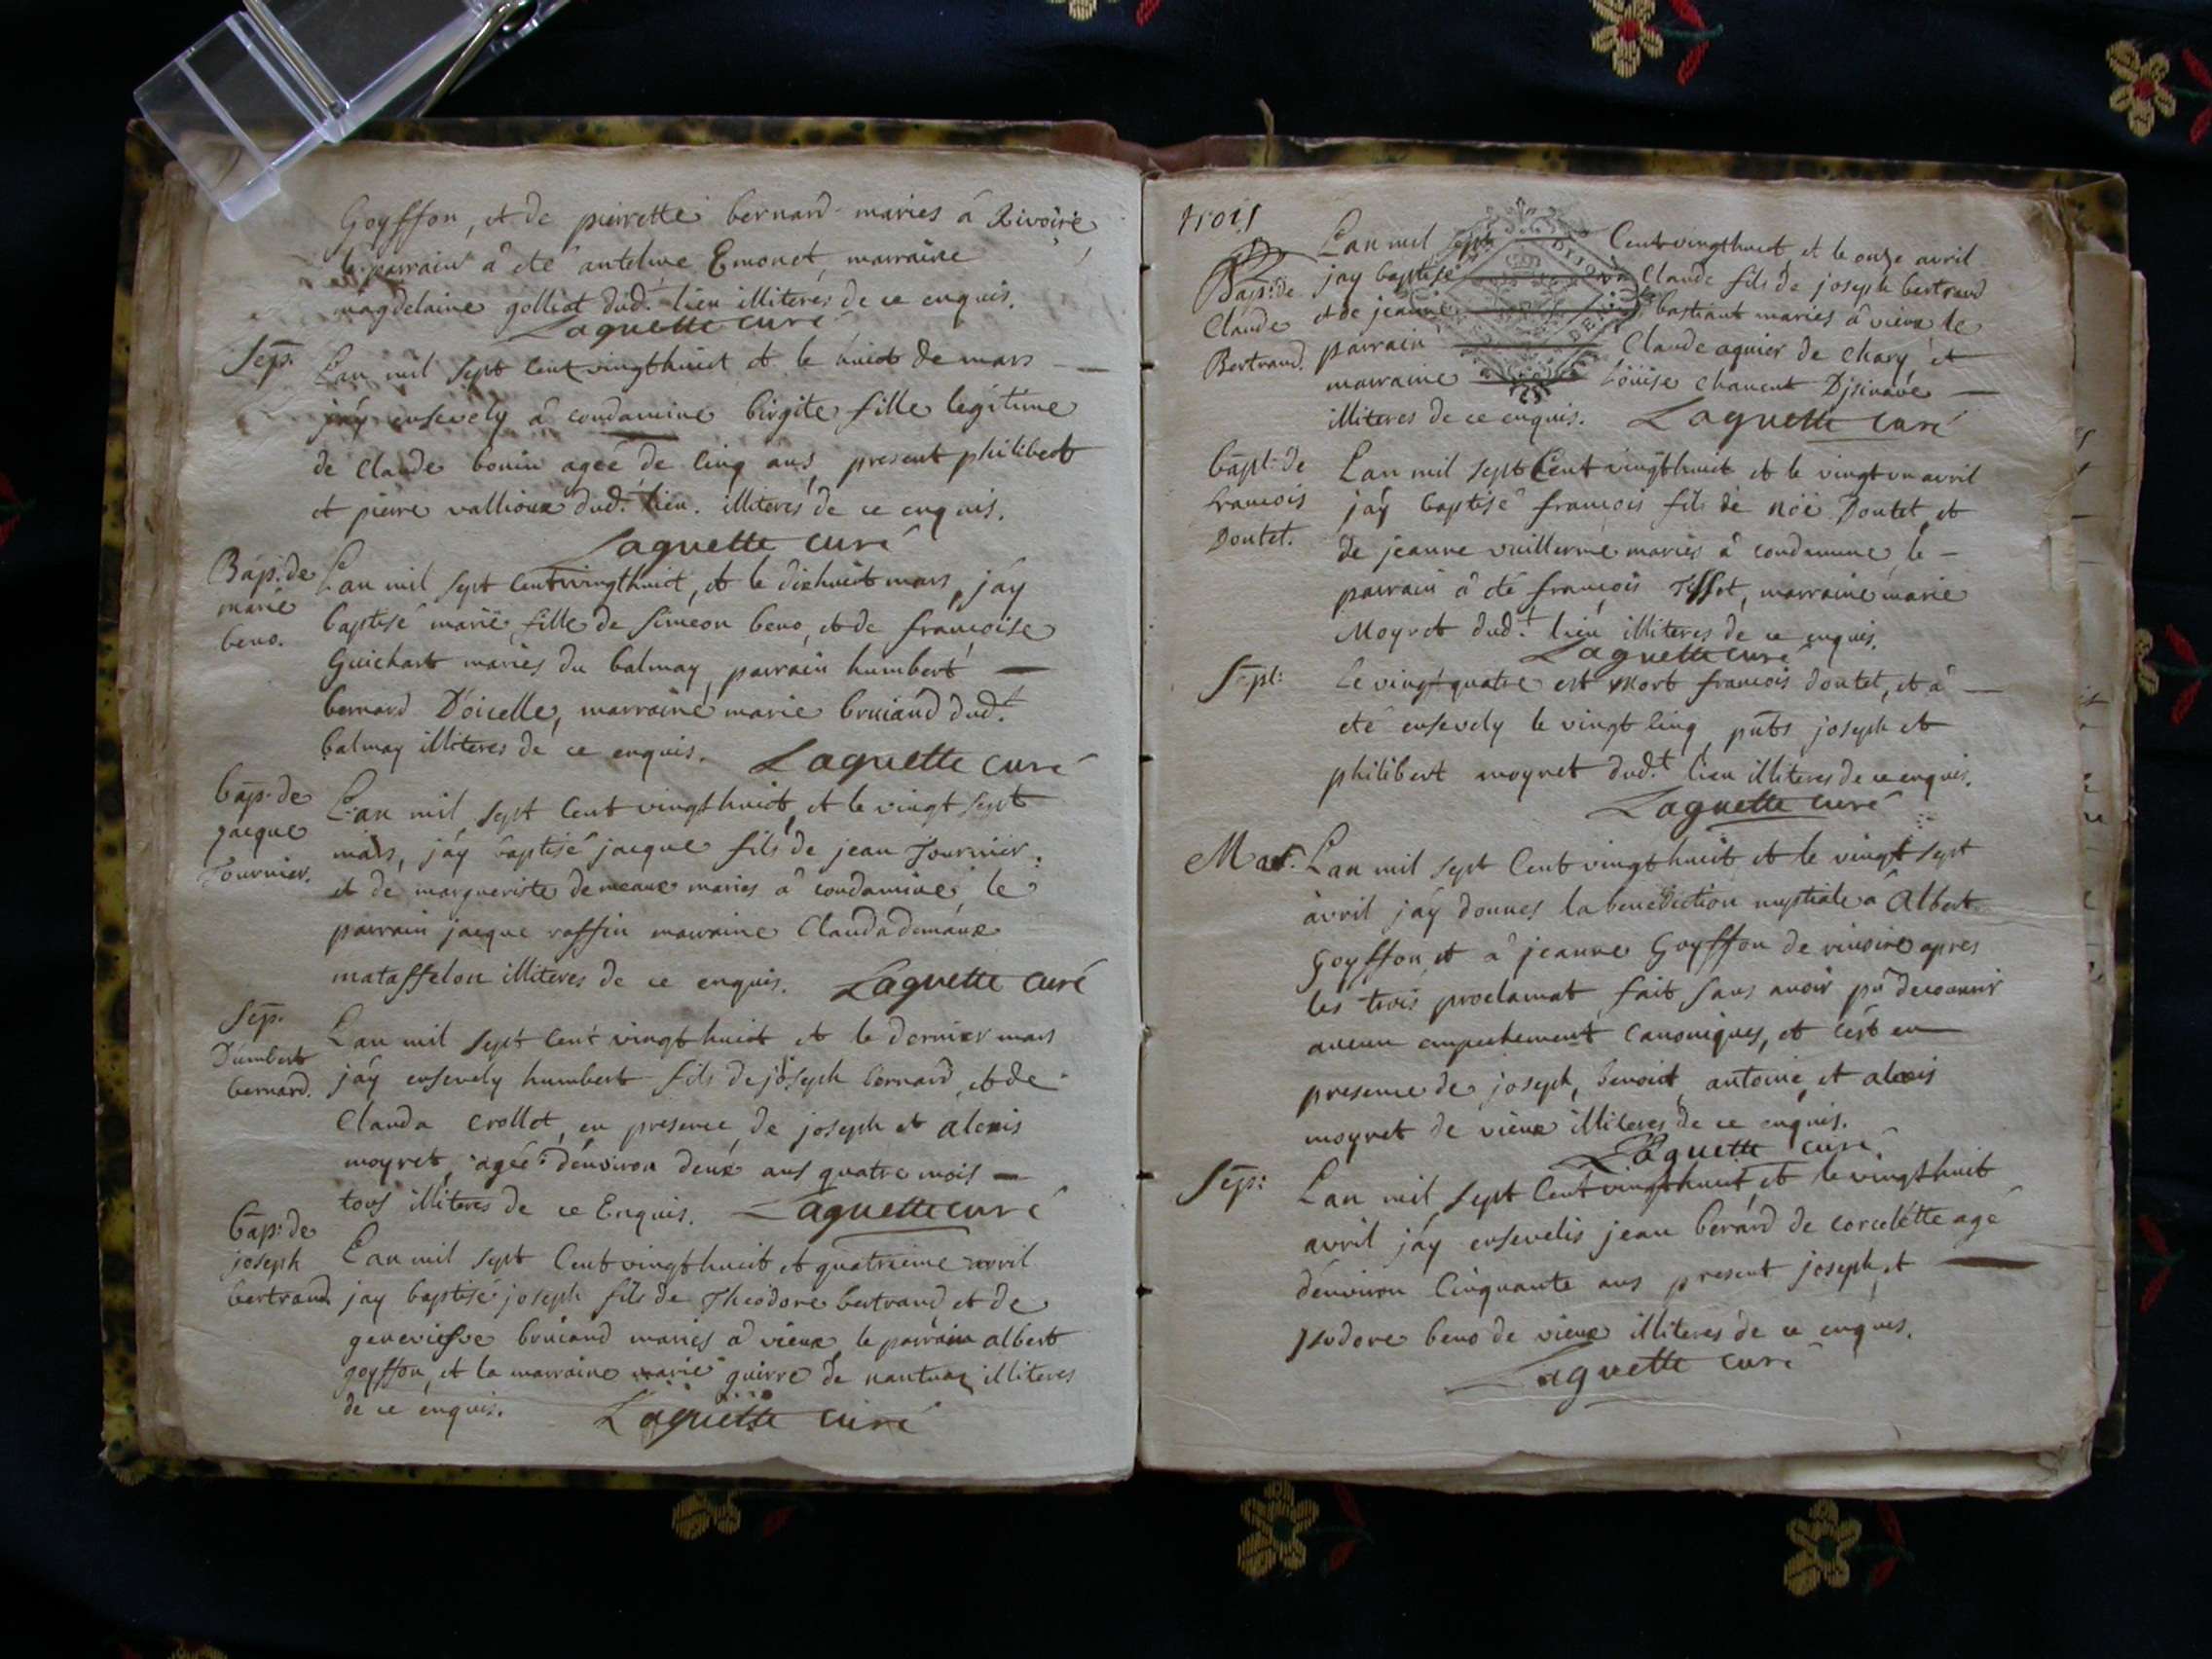 Goyffon, et de pierrette bernard maries a Rivoire
le parrain a été antelme Emonet, marraine
magdelaine golliet dud.t lieu illiteres de ce enquis.
Laguette curé
Sep. Lan mil sept cent vingthuict et le huict de mars
jáy ensevely á condamine birgite fille legitime
de claude bonin ageé de cinq ans, present philibert
et pierre vallioux dud.t lieu. illiteres de ce enquis.
Laguette curé
Bap: de marie beno. Lan mil sept cent vingthuict, et le dixhuict mars, jáy
baptisé marie fille de simeon beno, et de francoise
Guichart maries du balmay, parrain humbert
bernard D'oicelle, marraine marie bruiand dud.t
balmay illiteres de ce enquis. Laguette curé
bap. de jacque Fournier. Lan mil sept cent vingthuict, et le vingt sept
mars, jáy baptisé jacque fils de jean Fournier
et de margueriste demeaux maries á condamine, le
parrain jacque raffin marraine Clauda demáux
mataffelon illiteres de ce enquis. Laguette curé
Sep. D'umbert bernard. Lan mil sept cent vingt huict et le dernier mars
jáy ensevely humbert fils de joseph bernard, et de
Clauda Crollet, en presence de joseph et alexis
moyret, agée d'environ deux ans quatre mois
tous illiteres de ce Enquis. Laguette curé
bap: de joseph bertrand Lan mil sept cent vingthuict et quatrieme avril
jay baptisé joseph fils de Theodore bertrand et de
geneviefve bruiand maries a vieux le parrain albert
goyffon, et la marraine marie guirre de nantuaz illiteres
de ce enquis. Laguette curé
trois
Bap: de Claude Bertrand. Lan mil sept Cent vingthuict et le onze avril
jay baptisé Claude fils de joseph bertrand
et de jeanne bastiant maries á vieux le
parrain Claude aguier de chary et
marraine Loüise chanent
illiteres de ce enquis. Laguette curé
bapt: de francois Doutet. Lan mil sept Cent vingthuict et le vingt un avril
jáy baptisé francois fils de noë Doutet et
de jeanne vuillerme maries á condamine, le
parrain á été francois Tissot, marraine marie
Moyret dud.t lieu illiteres de ce enquis.
Laguette curé
Sepl: Le vingt quatre est mort francois doutet, et á
eté ensevely le vingt cinq, pnts joseph et
philibert moyret dud.t lieu illiteres de ce enquis.
Laguette curé
Mar. Lan mil sept Cent vingt huict et le vingt sept
avril jáy donnes la benediction nuptiale á Albert
Goyffon, et á jeanne Goyffon de rivoire apres
les trois proclamat fait sans avoir pû decouvrir
aucun empechement canoniques, et cést en
presence de joseph, benoict, antoine, et alexis
moyret de vieux illiteres de ce enquis.
Laguette curé
Sep: Lan mil sept Cent vingthuict et le vingthuit
avril jáy ensevelis jean berárd de corcelétte agé
d'environ Cinquante ans present joseph, et
beno de vieux illiteres de ce enques.
Laguette curé